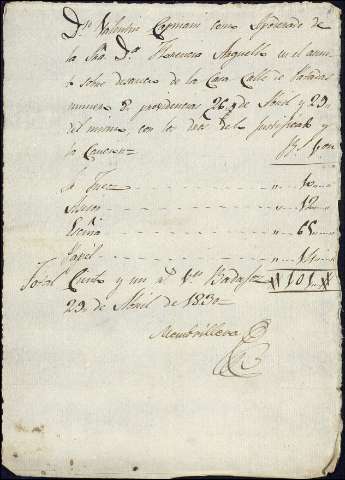 Dn. Valentin Capmani como Apoderado de
la Sra. Da. Florencia Arguello en el asunto
sobre desaucio de la Casa Calle de
numero 8 providencias 26 de Abril y 29
del mismo, con los dos del Justificate y
la
Rs. von
Sr. Juez 10
12
Escna. 65
Papel 14
Total Ciento y un rs. vn. Badajoz 101
29 de Abril de 1830
Membrillera